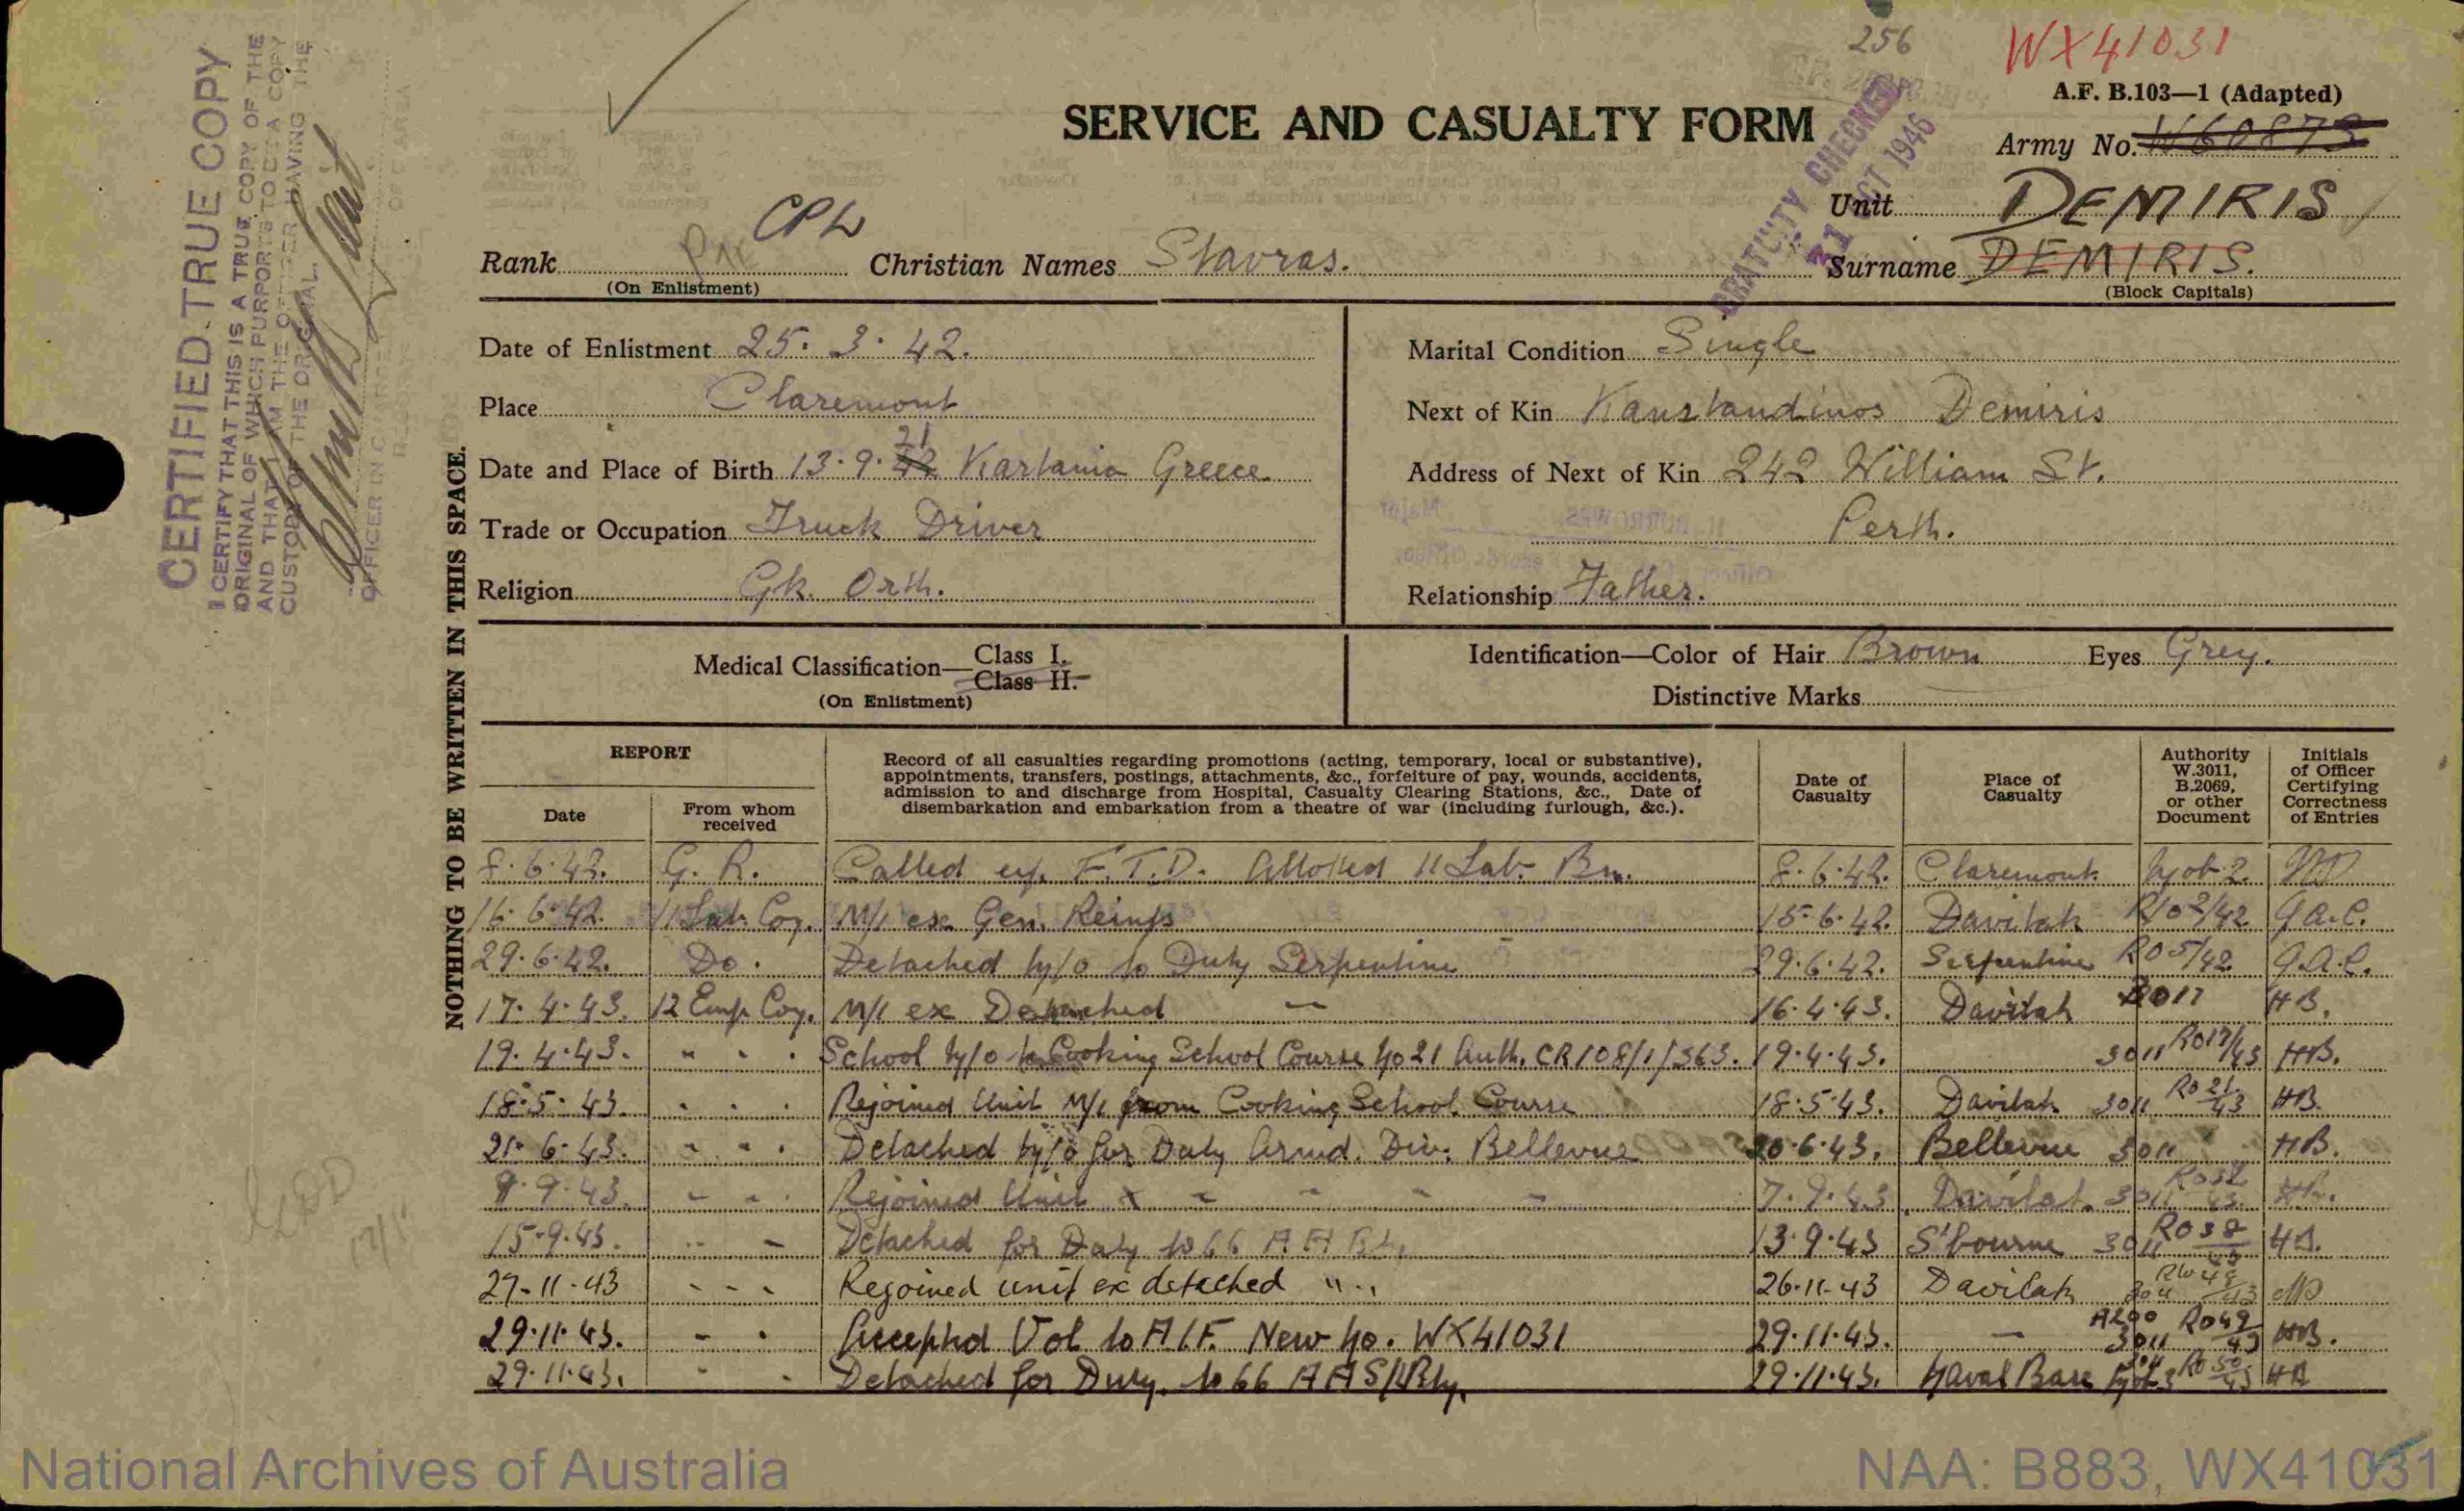 256
WX41031
A.F. B.103—1 (Adapted)
SERVICE AND CASUALTY FORM
Army No. W60873
GRATUITY CHECKED
31 OCT 1946
Unit DEMIRIS
CPL
Rank Pte Christian Names Stavras. Surname DEMIRIS.
(On Enlistment) (Block Capitals)
CERTIFIED TRUE COPY
I CERTIFY THAT THIS IS A TRUE COPY OF THE
ORIGINAL OF WHICH PURPORTS TO BE A COPY
AND THAT I AM THE OFFICER HAVING THE
CUSTODY OF THE ORIGINAL.
OFFICER IN CHARGE
NOTHING TO BE WRITTEN IN THIS SPACE.
Date of Enlistment 25. 3. 42.
Place Claremont
Date and Place of Birth 13.9.42 21 Kartania Greece
Trade or Occupation Truck Driver
Religion Gk. Orth.
Marital Condition Single
Next of Kin Kanstandinos Demiris
Address of Next of Kin 242 William St.
Perth.
Relationship Father.
Medical Classification— Class I.
Class II.
(On Enlistment)
Identification—Color of Hair Brown Eyes Grey.
Distinctive Marks
REPORT
Date
From whom received
Record of all casualties regarding promotions (acting, temporary, local or substantive),
appointments, transfers, postings, attachments, &c., forfeiture of pay, wounds, accidents,
admission to and discharge from Hospital, Casualty Clearing Stations, &c., Date of
disembarkation and embarkation from a theatre of war (including furlough, &c.).
Date of Casualty
Place of Casualty
Authority W.3011, B.2069, or other Document
Initials of Officer Certifying Correctness of Entries
8.6.42. G. R. Called up. F.T.D. Allotted 11 Lab. Bn. 8.6.42. Claremont Mob 2.
16.6.42. 11 Lab. Coy. M/I ex Gen. Reinfs 15.6.42. Davilak R/O 2/42 G.A.C.
29.6.42. Do. Detached M/O to Duty Serpentine 29.6.42. Serpentine RO 5/42 G.A.C.
17.4.43. 12 Emp Coy. M/I ex Detached — 16.4.43. Davilak RO17 HB.
19.4.43. " " " School M/O to Cooking School Course No 21 Auth. CR108/1/363. 19.4.43. 3011 RO17/43 HB.
18.5.43. " " " Rejoined Unit M/I from Cooking School Course 18.5.43. Davilak 3011 RO 21/43 HB.
21.6.43. " " " Detached M/O for Duty Armd. Div. Bellevue 20.6.43. Bellevue 3011 HB.
9.9.43. " " " Rejoined Unit 7.9.43 Davilak 3011 HB.
15.9.43. " " Detached for Duty to 66 13.9.43 S'bourne 3011 RO38/43 HB.
27-11-43 " " " Rejoined unit ex detached " " 26-11-43 Davilak 3011
29.11.43. " " Accepted Vol to A.I.F. New No. WX41031 29.11.43. — A200 3011 RO49/43 HB.
29.11.43. " " Detached for Duty. to 66 A A S/L Bty. 29.11.43. Naval Base RO50/43 HB
National Archives of Australia
NAA: B883, WX41031